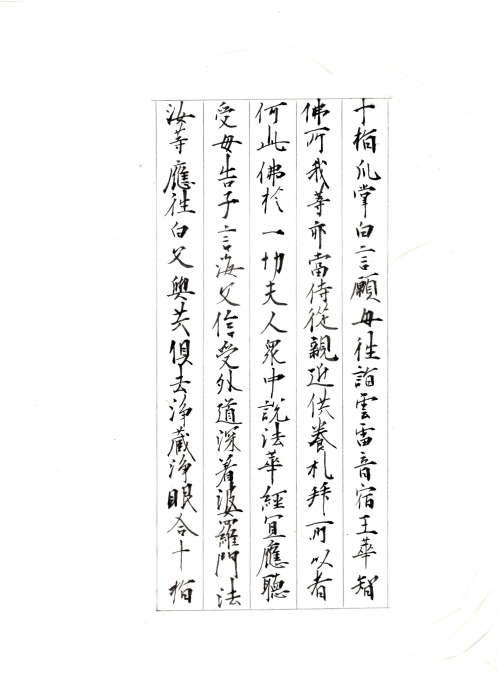 十指爪掌白言願母往詣雲雷音宿王華智
佛所我等亦當侍從親近供養礼拜所以者
何此佛於一切天人衆中說法華經宜應聽
受母告子言海父信受外道深着婆羅門法
汝等應往白父與共俱去淨藏淨眼合十指